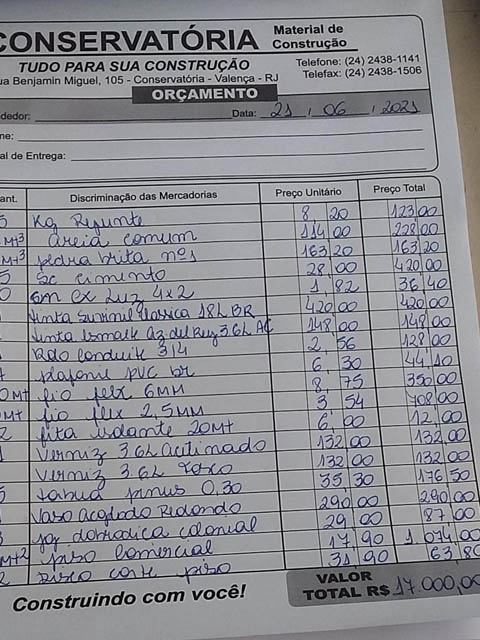 CONSERVATÓRIA Material de Construção
TUDO PARA SUA CONSTRUÇÃO Telefone: (24) 2438-1141
ua Benjamin Miguel, 105 - Conservatória - Valença - RJ Telefax: (24) 2438-1506
ORÇAMENTO
dedor: Data: 21 / 06 / 2021
ne:
al de Entrega:
ant. Discriminação das Mercadorias Preço Unitário Preço Total
5 Kg Rejunte 8,20 123,00
Mt³ areia comum 114,00 228,00
Mt³ pedra brita nº1 163,20 163,20
5 Sc cimento 28,00 420,00
0 cx Luz 4x2 1,82 36,40
tinta 18L BR 420,00 420,00
tinta Esmalte Az. del Rey 3.6L AC 148,00 148,00
Rolo conduite 3/4 2,56 128,00
plafonie PVC br 6,30 44,10
0Mt fio flex 6MM 8,75 350,00
0Mt fio flex 2,5MM 3,54 708,00
2 fita isolante 20Mt 6,00 12,00
Verniz 3.6L Acetinado 132,00 132,00
Verniz 3.6L Fosco 132,00 132,00
5 tabua pinus 0,30 35,30 176,50
Vaso Acoplado Redondo 290,00 290,00
3 jog dobradica colonial 29,00 87,00
Mt² piso comercial 17,90 1.074,00
2 Risco corte piso 31,90 63,80
Construindo com você! VALOR TOTAL R$ 17.000,00